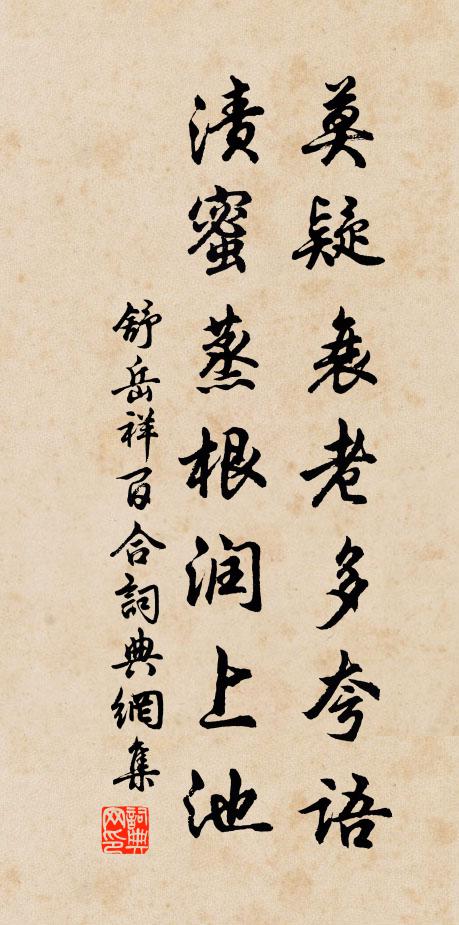 莫疑衰老多夸语
渍蜜蒸根润上池
舒岳祥百合詞典網集
詞典网印